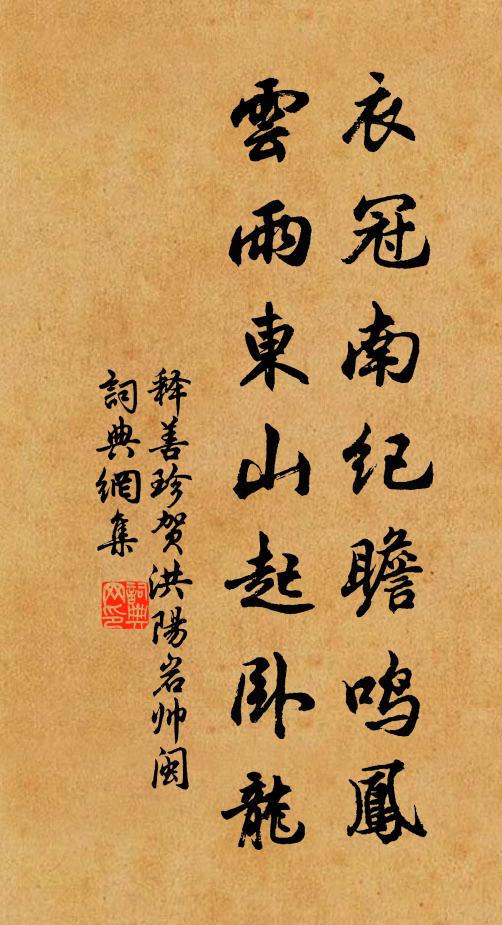 衣冠南纪瞻鸣鳳
雲雨東山起卧龍
释善珍贺洪陽岩帅闽
詞典網集
詞典網印